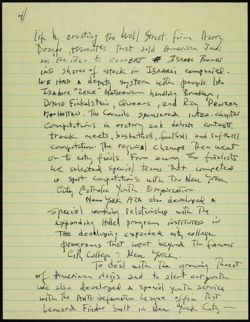 4/
life by creating the Wall Street firm Harry
Associates that sold American Jews
on the idea to convert Israel Bonds
into shares of stock in Israeli companies.
We had a deputy system with people like
Isadore "Zake" handling Brooklyn,
David Finkelstein Queens, and Ray
Manhattan. The Councils sponsored inter-chapter
competitions in oratory and debate contests,
track meets, basketball, football and softball
competition. The regional champs then went
on to city finals. From among the finalists
we selected special teams that competed
in sport competitions with the New York
City Catholic Youth Organization
New York AZA also developed a
special working relationship with the
expanding Hillel program instituted in
the developing expanded city college
programs that went beyond the famous
City College of New York.
To deal with the growing threat
of American Nazis and to alert our youth
we also developed a special youth service
with the Anti-Defamation League office that
Leonard Finder built in New York City